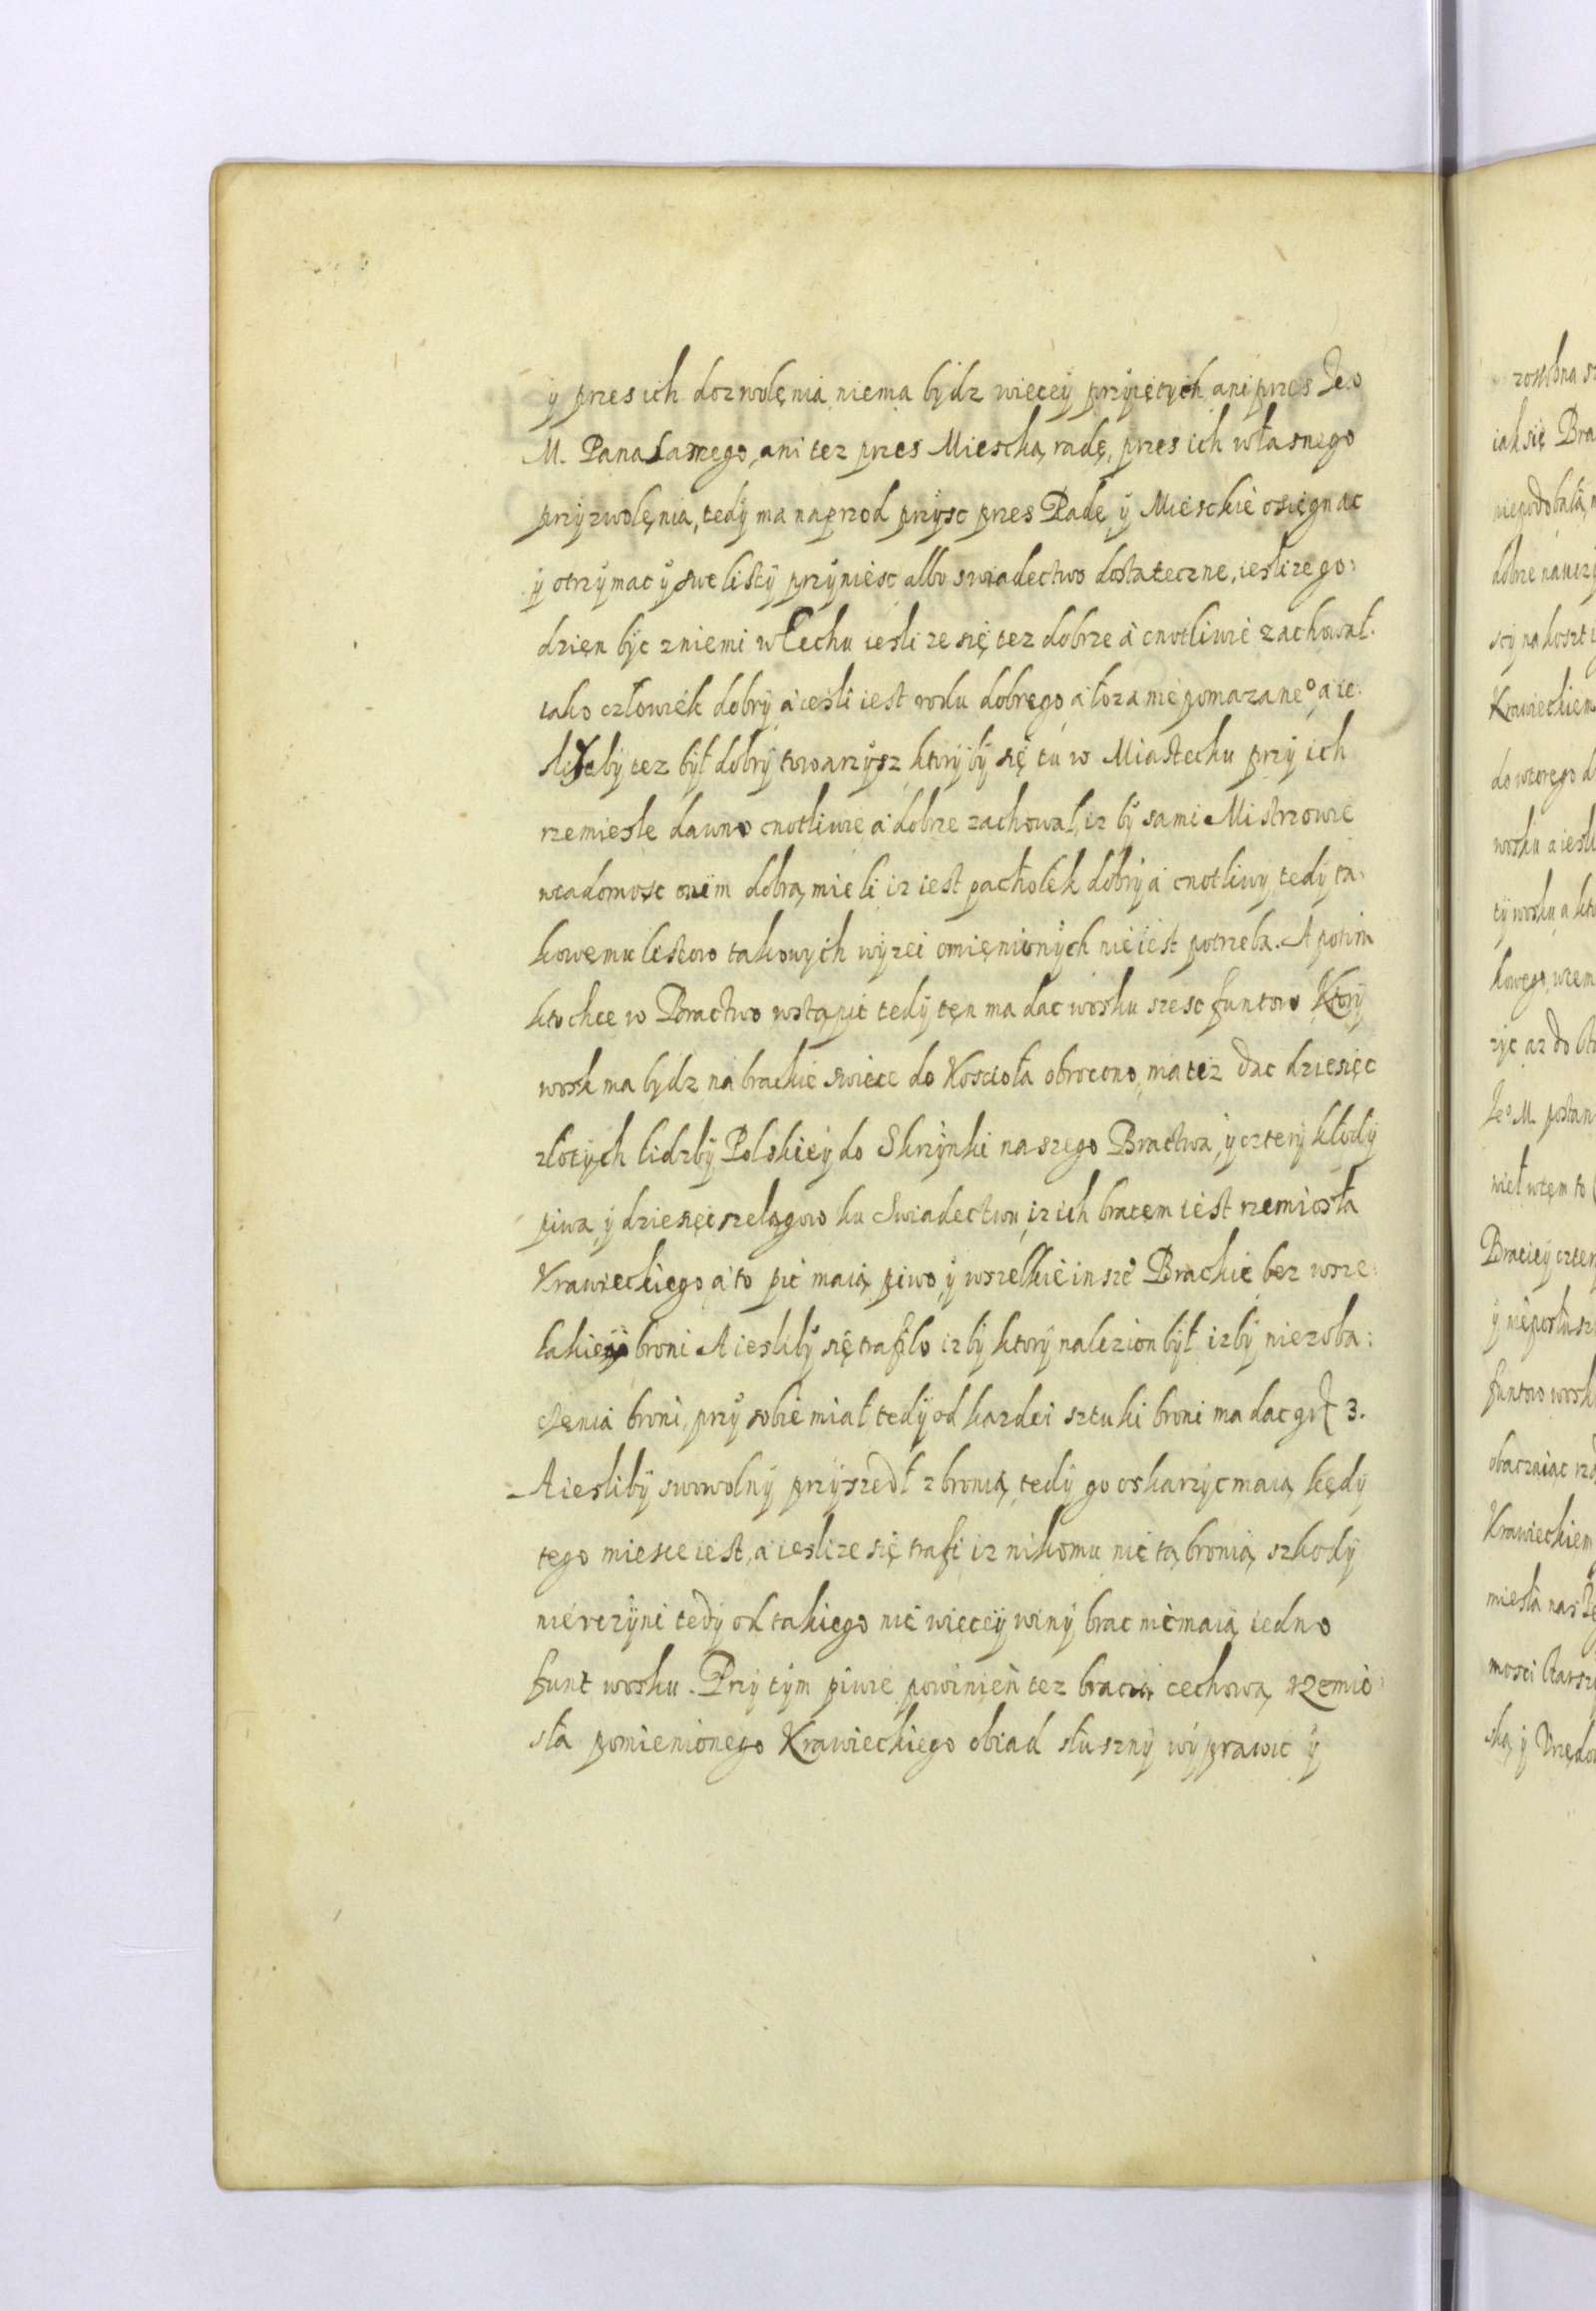 ÿ przes ich dozwolęnia niema bÿdz więceÿ przÿiętÿch, ani przes Je⁰
M. Pana samego, ani tez przes Miescką radę, przes ich własnego
przÿzwolęnia, tedÿ ma naprzod przÿsc przes Radę ÿ Mieskie osięgnac
ÿ otrzÿmac ÿ swe listÿ przÿniesc albo swiadectwo dostateczne, ieslize go:
dzien bÿc zniemi w Cechu iesli ze się tez dobrze a cnotliwie zachował.
iako człowiek dobrÿ a iesli iest rodu dobrego a łoza niepomazane⁰, a ie:
sliżebÿ tez bÿł dobrÿ towarzÿsz ktorÿ bÿ się tu w Miastecku przÿ ich
rzemiesle dawno cnotliwie a dobrze zachowal, iz bÿ sami Mistrzowie
wiadomosc onim dobrą mieli iz iest pachołek dobrÿ a cnotliwy, tedÿ ta:
kowemu listow takowÿch wÿzei omięnionÿch nieiest potrzeba. A potim
kto chce w Bractwo wstąpic tedÿ tęn ma dac wosku szesc funtow Ktorÿ
wosk ma bydz na brackie swiece do Koscioła obrocono, ma tez dac dziesięc
złotÿch lidzbÿ Polskieÿ do Skrzÿnki naszego Bractwa, ÿ czterÿ kłodÿ
piwa, ÿ dziesięc szelągow ku Swiadectwu, iz ich bratem iest rzemiosła
Krawieckiego a to pic maią piwo, ÿ wszelkie insze Brackie bez wsze:
lakieÿ broni A iesliby się trafiło izbÿ ktorÿ nalezion bÿł izbÿ niezoba:
czenia broni przÿ sobie miał tedÿ od kazdei sztuki broni ma dac gr 3.
A ieslibÿ swowolnÿ przÿszedł z bronią, tedÿ go oskarzÿc maią kędÿ
tego miesce iest, a ieslize się trafi iz nikomu nic tą bronią szkodÿ
nieuczÿni tedÿ od takiego nic więceÿ winÿ brac niemaią iedno
funt wosku. Przÿ tÿm piwie powinień tez bracią cechową rzemio:
sła pomienionego Krawieckiego obiad słusznÿ wÿprawic ÿ